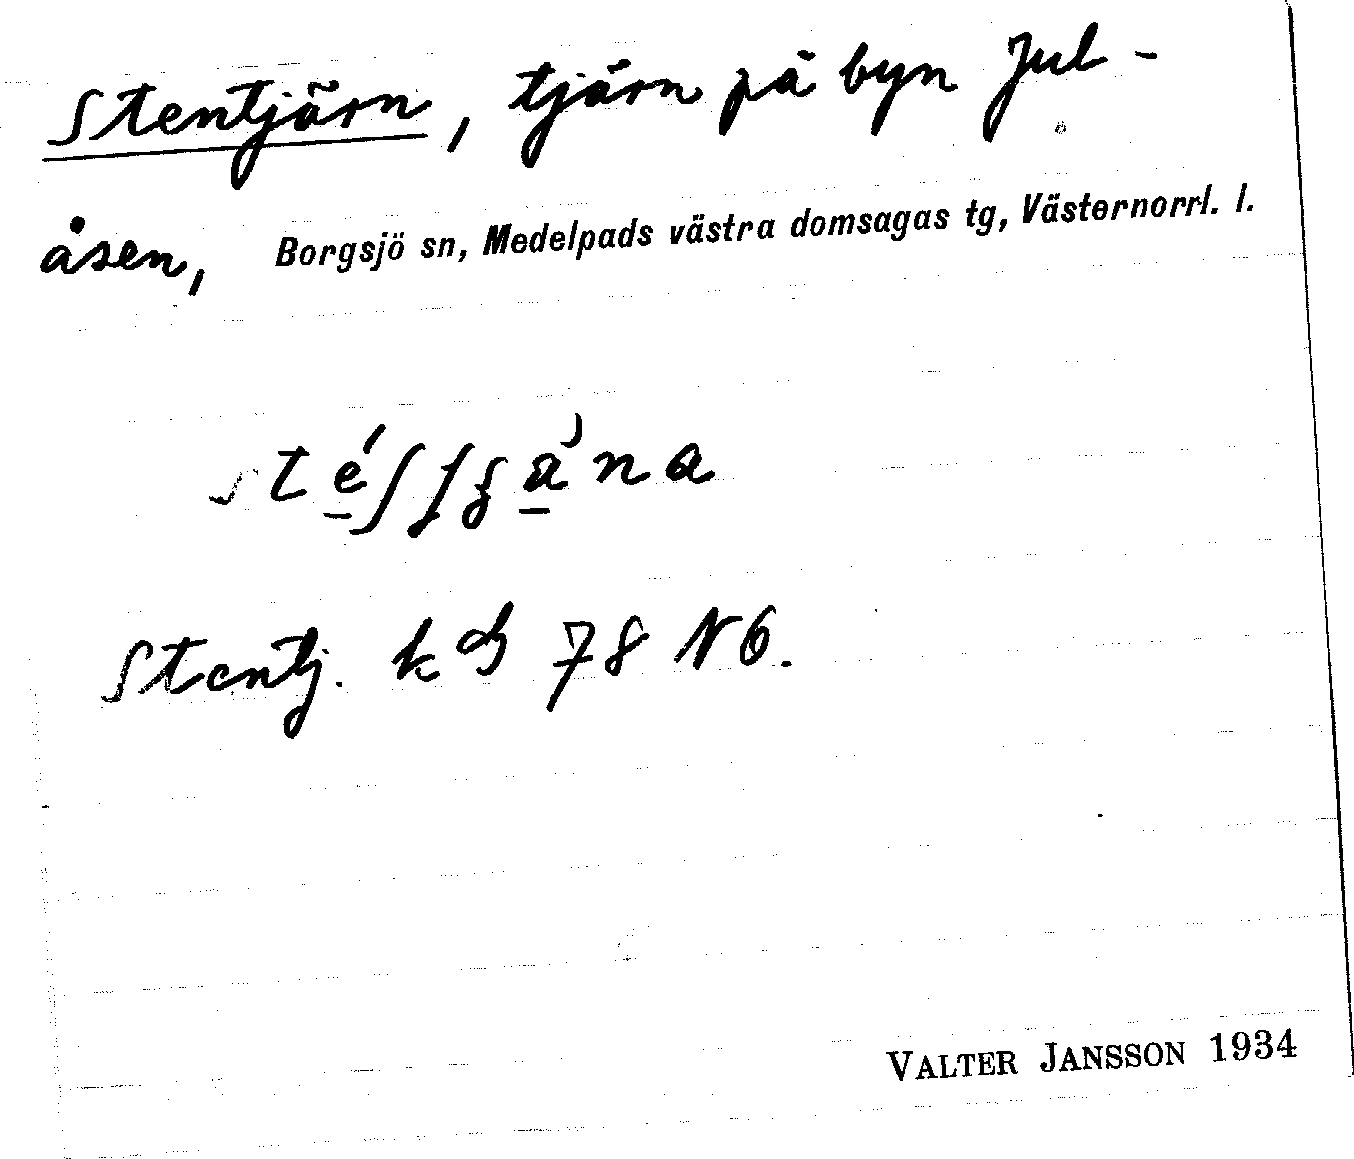 Stentjärn, tjärn på byn Jul-
åsen, Borgsjö sn, Medelpads västra domsagas tg, Västernorrl. l.
Stentj. kb 78 N6.
VALTER JANSSON 1934